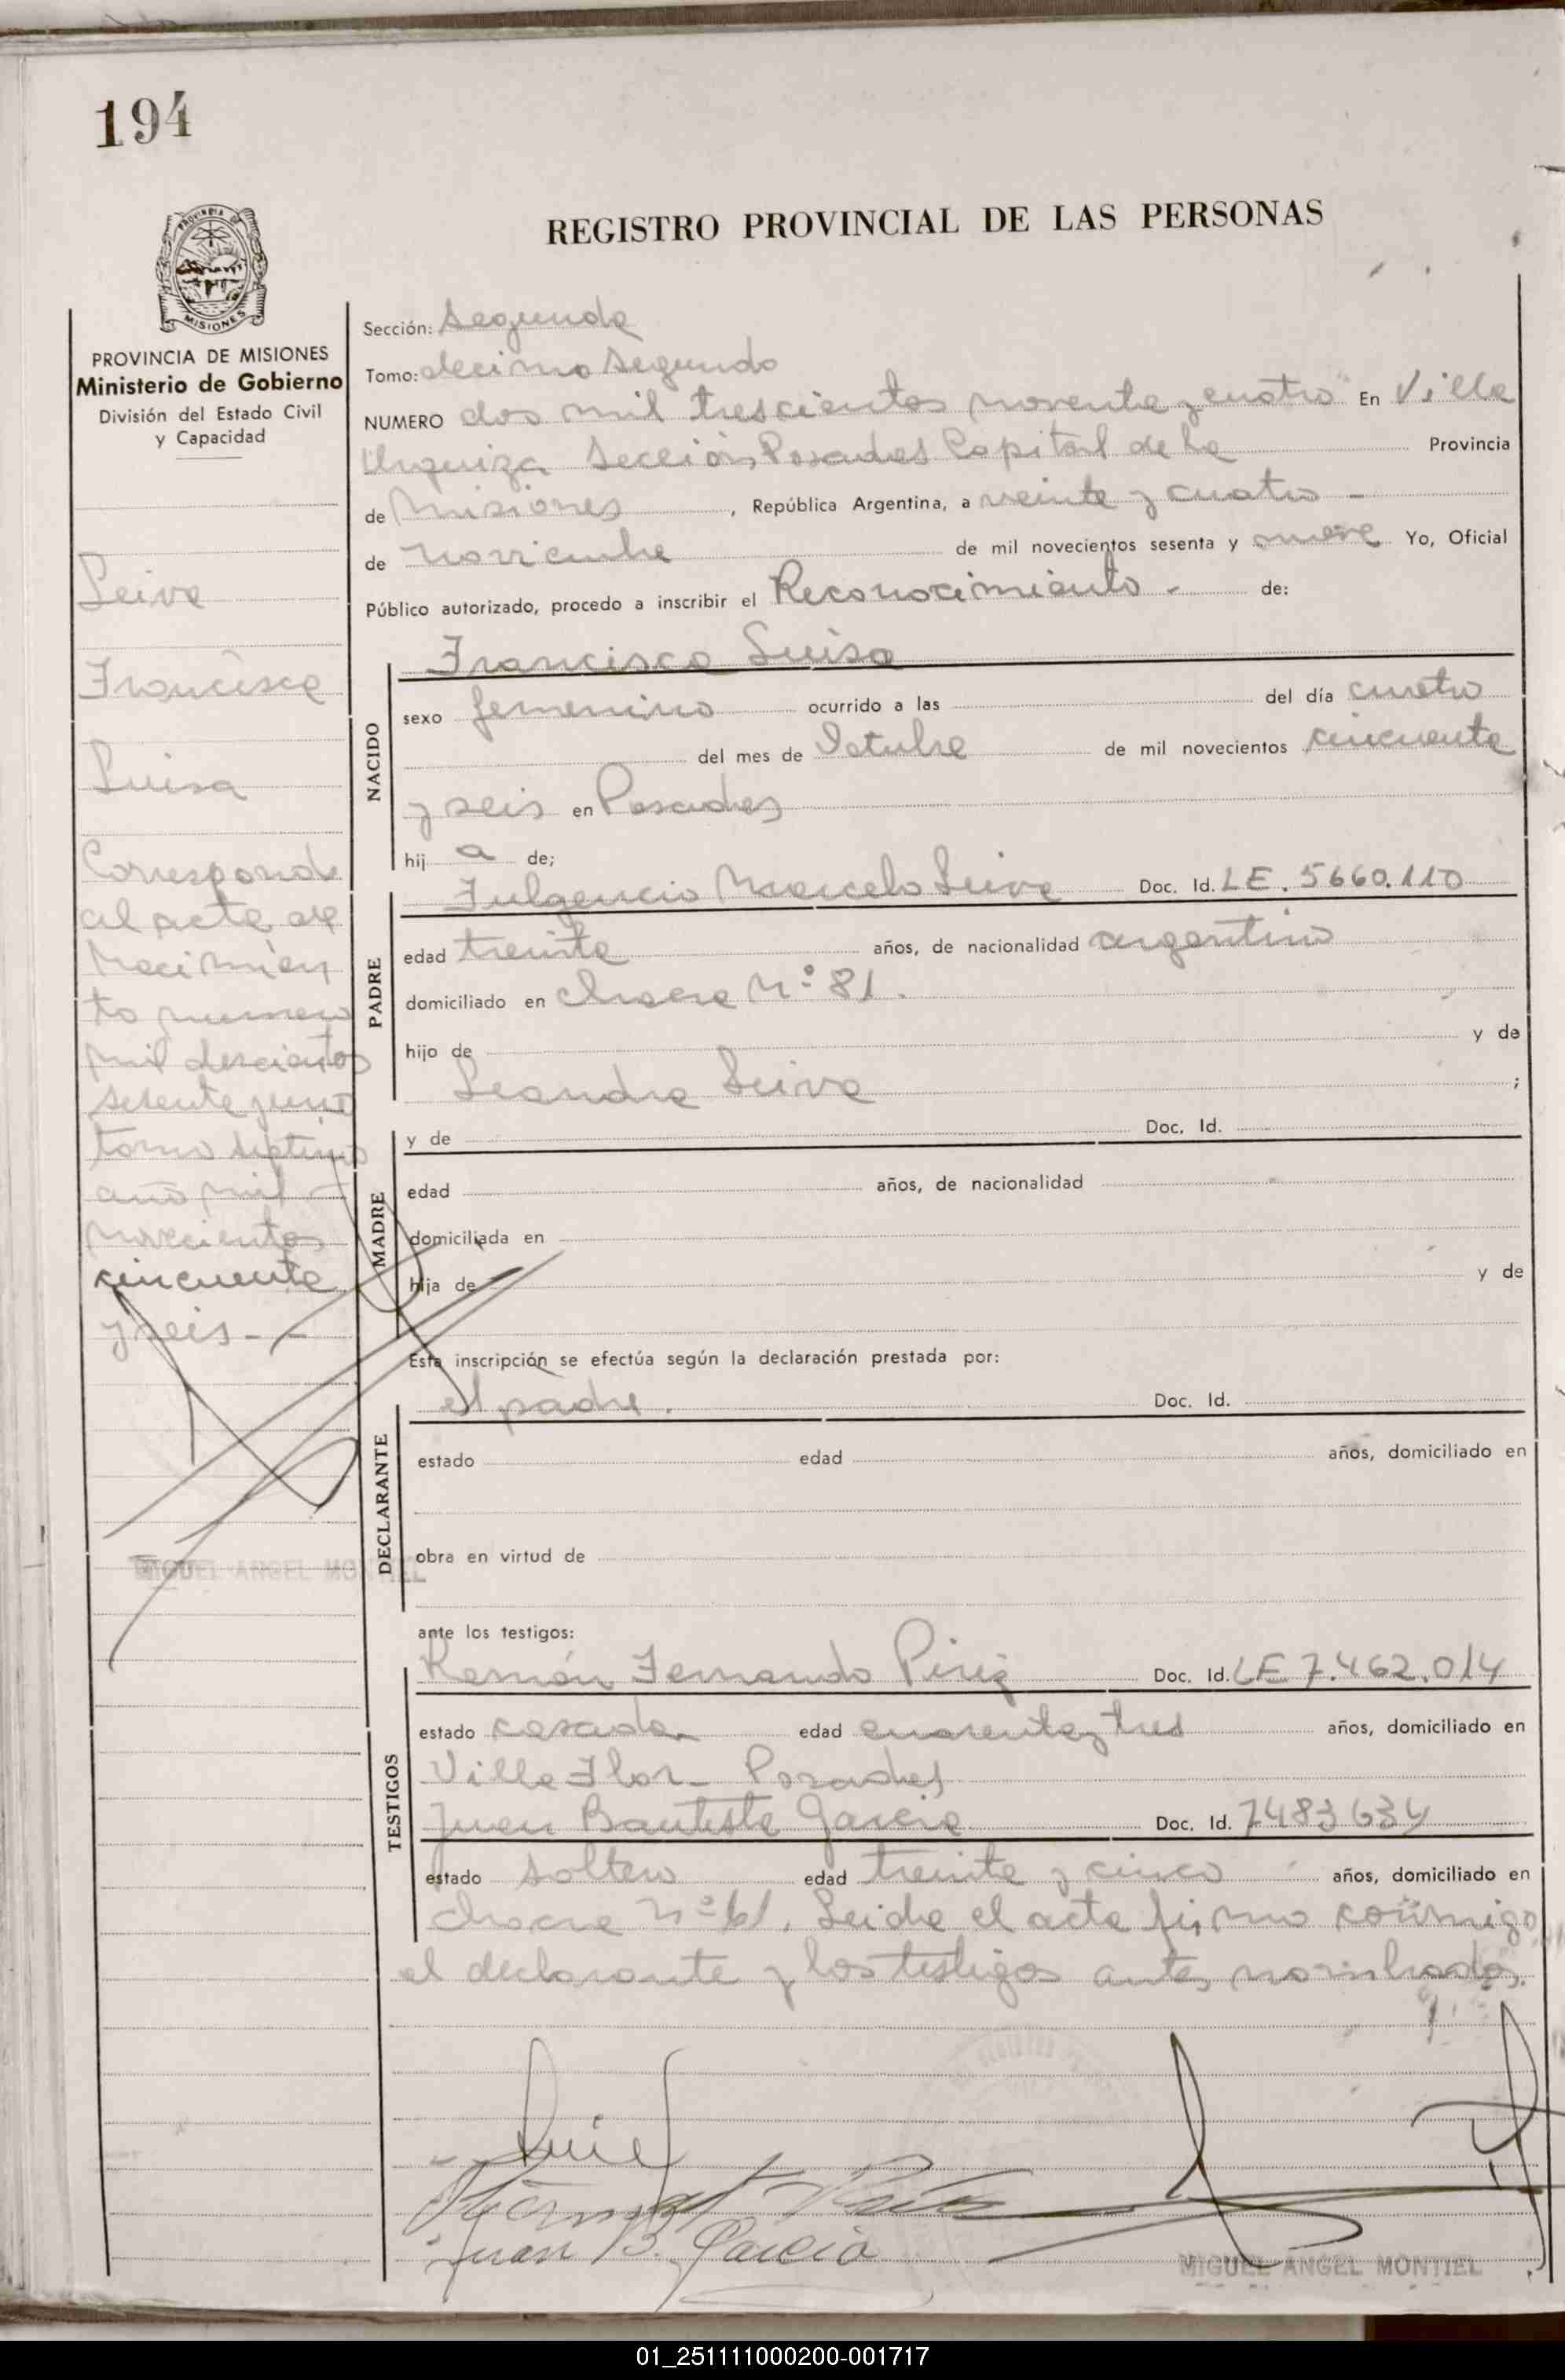 194
REGISTRO PROVINCIAL DE LAS PERSONAS
PROVINCIA DE MISIONES
MISIONES
PROVINCIA DE MISIONES
Ministerio de Gobierno
División del Estado Civil
y Capacidad
Leiva
Francisca
Luisa
Corresponde
al acta de
Nacimien
to numero
mil doscientos
setenta y uno
tomo septimo
año mil
novecientos
cincuenta
y seis - -
MIGUEL ANGEL MONTIEL
Sección: Segunda
Tomo: decimo segundo
NUMERO dos mil trescientos noventa y cuatro En Villa
Urquiza Sección Posadas Capital de la Provincia
de Misiones, República Argentina, a veinte y cuatro -
de noviembre de mil novecientos sesenta y nueve Yo, Oficial
Público autorizado, procedo a inscribir el Reconocimiento - de:
Francisca Luisa
NACIDO
sexo femenino ocurrido a las del día cuatro
del mes de Octubre de mil novecientos cincuenta
y seis en Posadas
hij a de;
PADRE
Fulgencio Marcelo Leiva Doc. Id. LE. 5660.110
edad treinta años, de nacionalidad argentino
domiciliado en chacra N° 81.
hijo de y de
Leandra Leiva ;
MADRE
y de Doc. Id.
edad años, de nacionalidad
domiciliada en
hija de y de
Esta inscripción se efectúa según la declaración prestada por:
DECLARANTE
el padre. Doc. Id.
estado edad años, domiciliado en
obra en virtud de
ante los testigos:
TESTIGOS
Ramón Fernando Doc. Id. LE 7.462.014
estado casado edad cuarenta y tres años, domiciliado en
Villa Flor - Posadas
Juan Bautista Garcia Doc. Id. 7483634
estado soltero edad treinta y cinco años, domiciliado en
chacra N° 61. Leida el acta firmo conmigo
el declarante y los testigos antes nombrados.
Juan B. Garcia
MIGUEL ANGEL MONTIEL
01_251111000200-001717